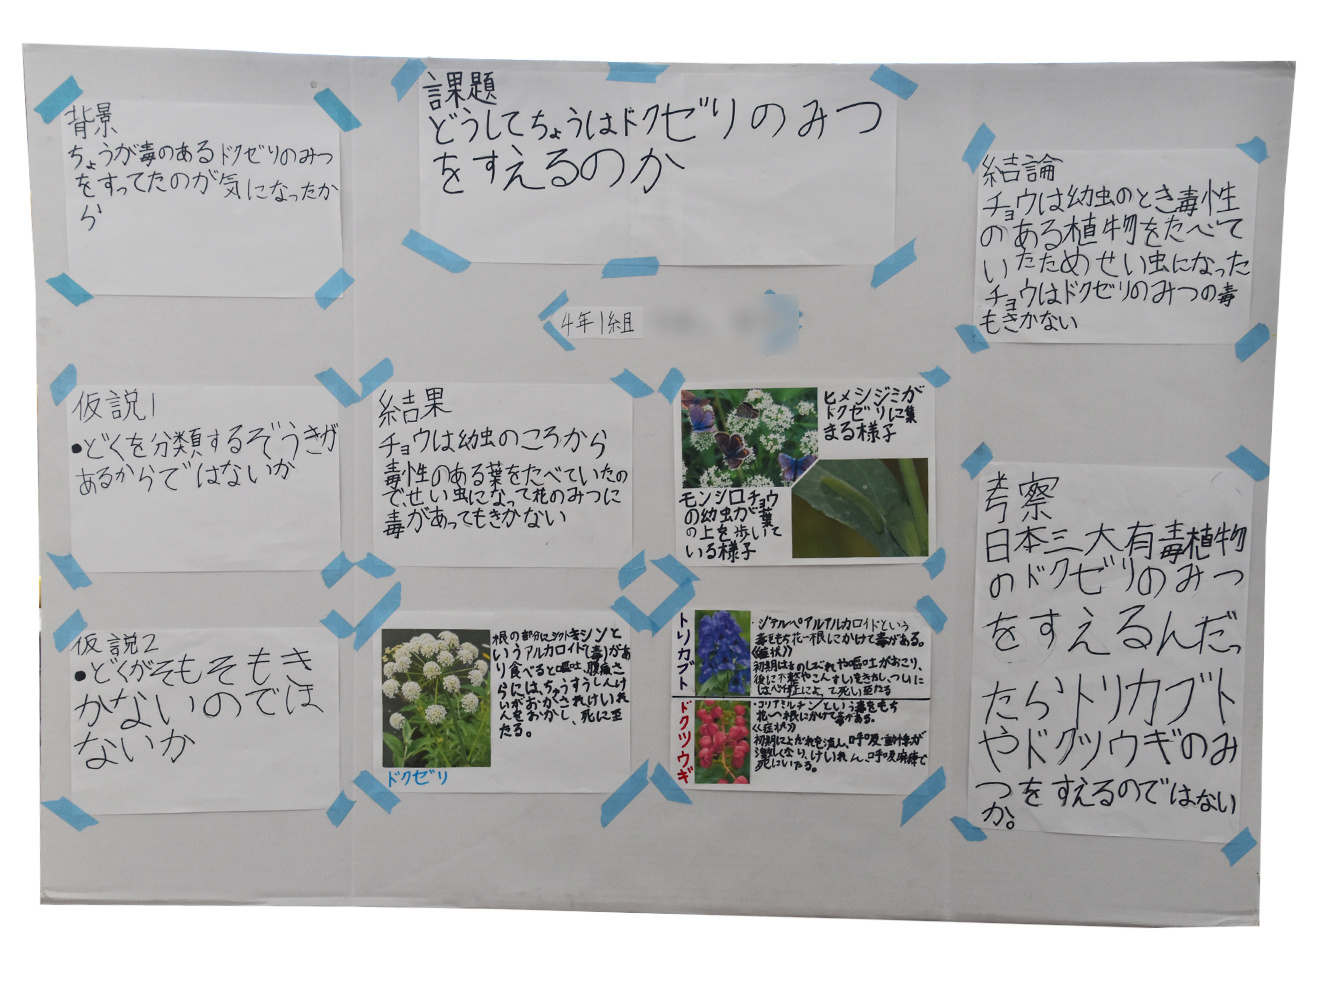 課題
どうしてちょうはドクゼリのみつ
をすえるのか
4年1組
背景
ちょうが毒のあるドクゼリのみつ
をすってたのが気になったか
ら
仮説1
●どくを分類するぞうきが
あるからではないか
仮説2
●どくがそもそもき
かないのでは
ないか
結果
チョウは幼虫のころから
毒性のある葉をたべていたの
で、せい虫になって花のみつに
毒があってもきかない
ヒメシジミが
ドクゼリに集
まる様子
モンシロチョウ
の幼虫が葉
の上を歩いて
いる様子
根の部分にシクトキシンと
いうアルカロイド(毒)があ
り食べると嘔吐、腹痛さ
らには、ちゅうすうしんけ
いがおかされけいれ
んをおかし、死に至
たる。
ドクゼリ
トリカブト
・ジテルペアルアルカロイドという
毒をもち花〜根にかけて毒がある。
《症状》
初期は舌のしびれや嘔吐がおこり、
後に不整やこんすいをきたし、ついに
によって死い至たる
ドクツウギ
・コリアミルチンという毒をもち
花〜根にかけて毒がある。
《症状》
初期によだれを流し、呼吸・動悸が
激しくなり、けいれん、呼吸麻痺で
死にいたる。
結論
チョウは幼虫のとき毒性
のある植物をたべて
いたためせい虫になった
チョウはドクゼリのみつの毒
もきかない
考察
日本三大有毒植物
のドクゼリのみつ
をすえるんだっ
たらトリカブト
やドクツウギのみ
つをすえるのではない
か。